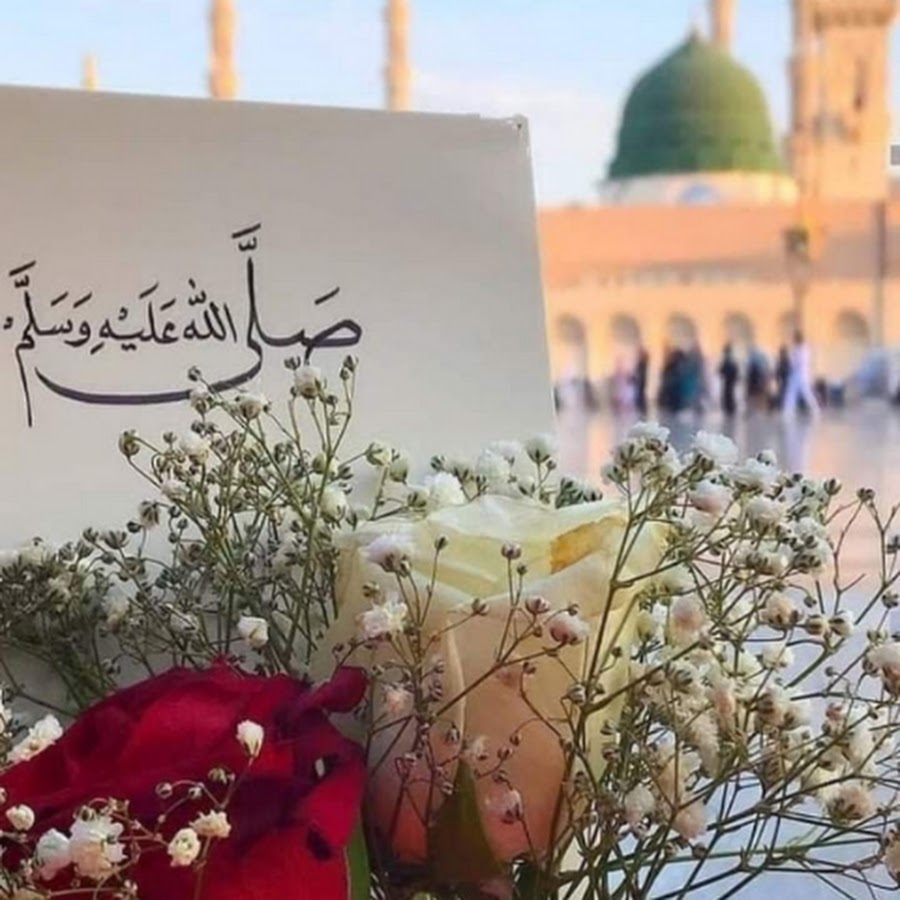 صَلَّى اللَّه عَلَيْهِ وَسَلَّمَ